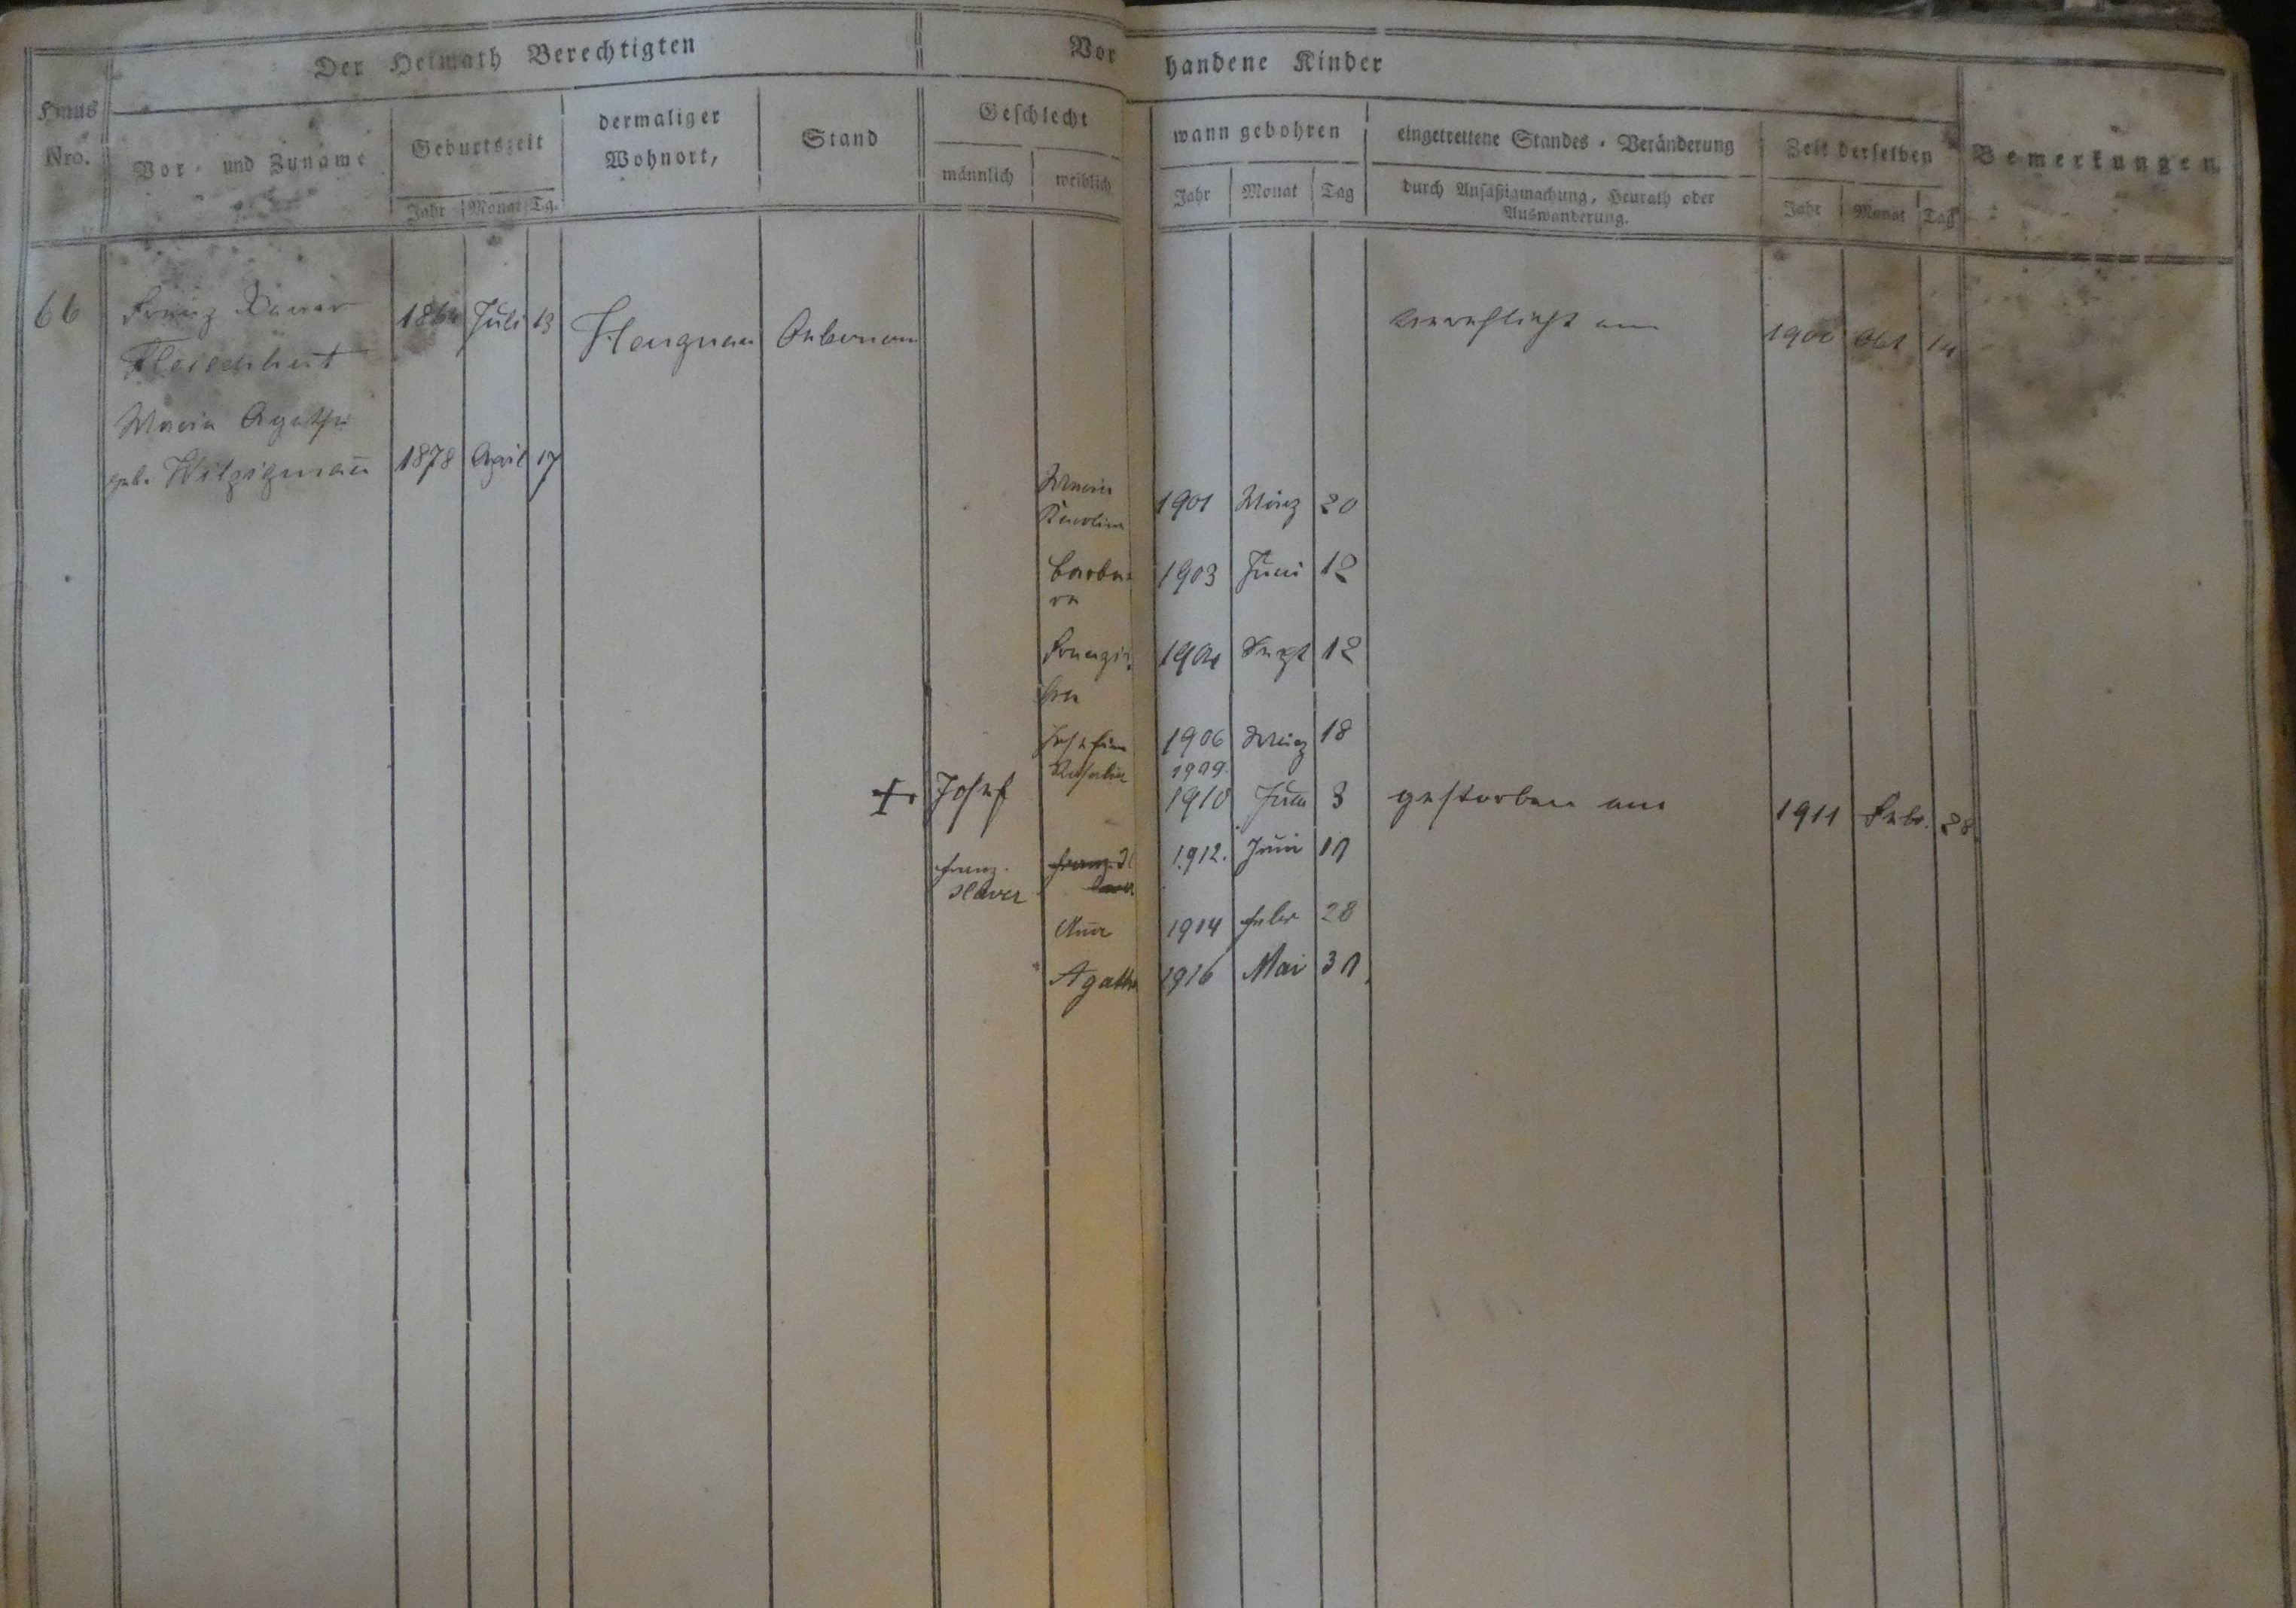 Der Heimath Berechtigten
Vorhandene Kinder
Haus Nro.
Vor- und Zuname
Geburtszeit
Jahr Monat Tg.
dermaliger Wohnort,
Stand
Geschlecht
männlich weiblich
wann gebohren
Jahr Monat Tag
eingetrettene Standes-Veränderung
durch Ansäßigmachung, Heurath oder
Auswanderung.
Zeit derselben
Jahr Monat Tag
Bemerkungen
66 Franz Xaver 1864 Juli 13
verehlicht am 1900 Okt 14
Maria Agatha
geb. 1878 April 17
Maria
Karolina 1901 März 20
Barba-
ra 1903 Juni 12
Franzis-
1904 Sept 12
Josefina 1906 März 18
Rosalia 1909.
Josef 1910 Juni 3 gestorben am 1911 Febr. 28
Franz Xaver
Franz.
Xaver 1912. Juni 11
Anna 1914 Febr 28
Agatha 1916 Mai 31